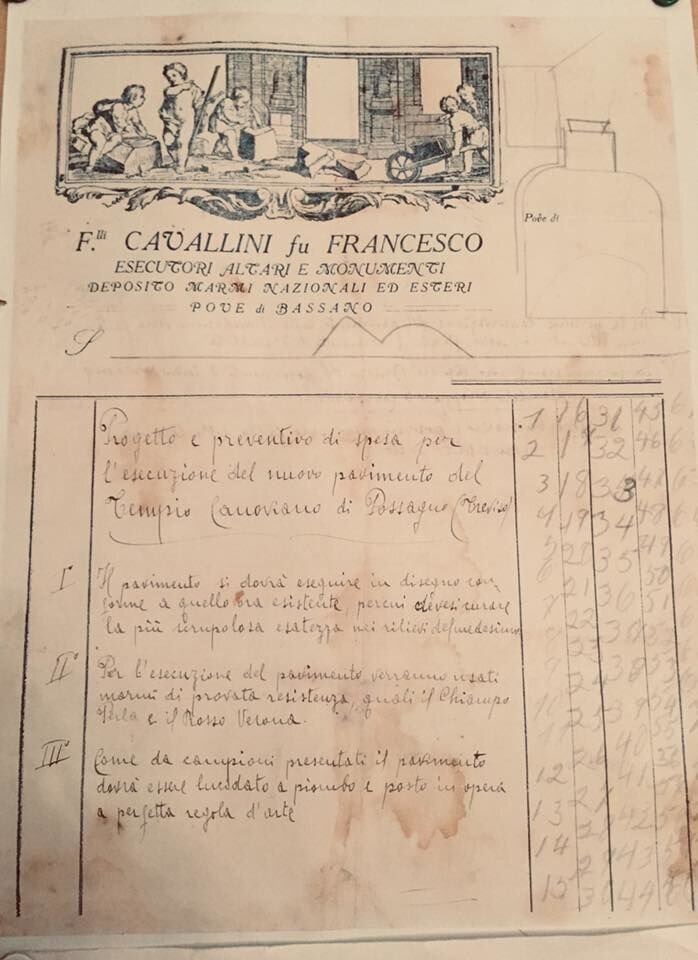 F.lli CAVALLINI fu FRANCESCO
ESECUTORI ALTARI E MONUMENTI
DEPOSITO MARMI NAZIONALI ED ESTERI
POVE di BASSANO
Pove di
S
Progetto e preventivo di spesa per
l'esecuzione del nuovo pavimento del
Tempio Canoviano di Possagno (Treviso)
I° Il pavimento si dovrà eseguire in disegno con-
forme a quello ora esistente, perciò devesi curare
la più scrupolosa esatezza nei rilievi del medesimo
II° Per l'esecuzione del pavimento verranno usati
marmi di provata resistenza, quali il Chiampo
Perla e il Rosso Verona.
III° Come da campioni presentati il pavimento
dovrà essere lucidato a piombo e posto in opera
a perfetta regola d'arte
1 16 31
2 32 46
3 18 33
4 19 34 48
5 35 49
21 36 50
12 41
13 42
14 43
15 44